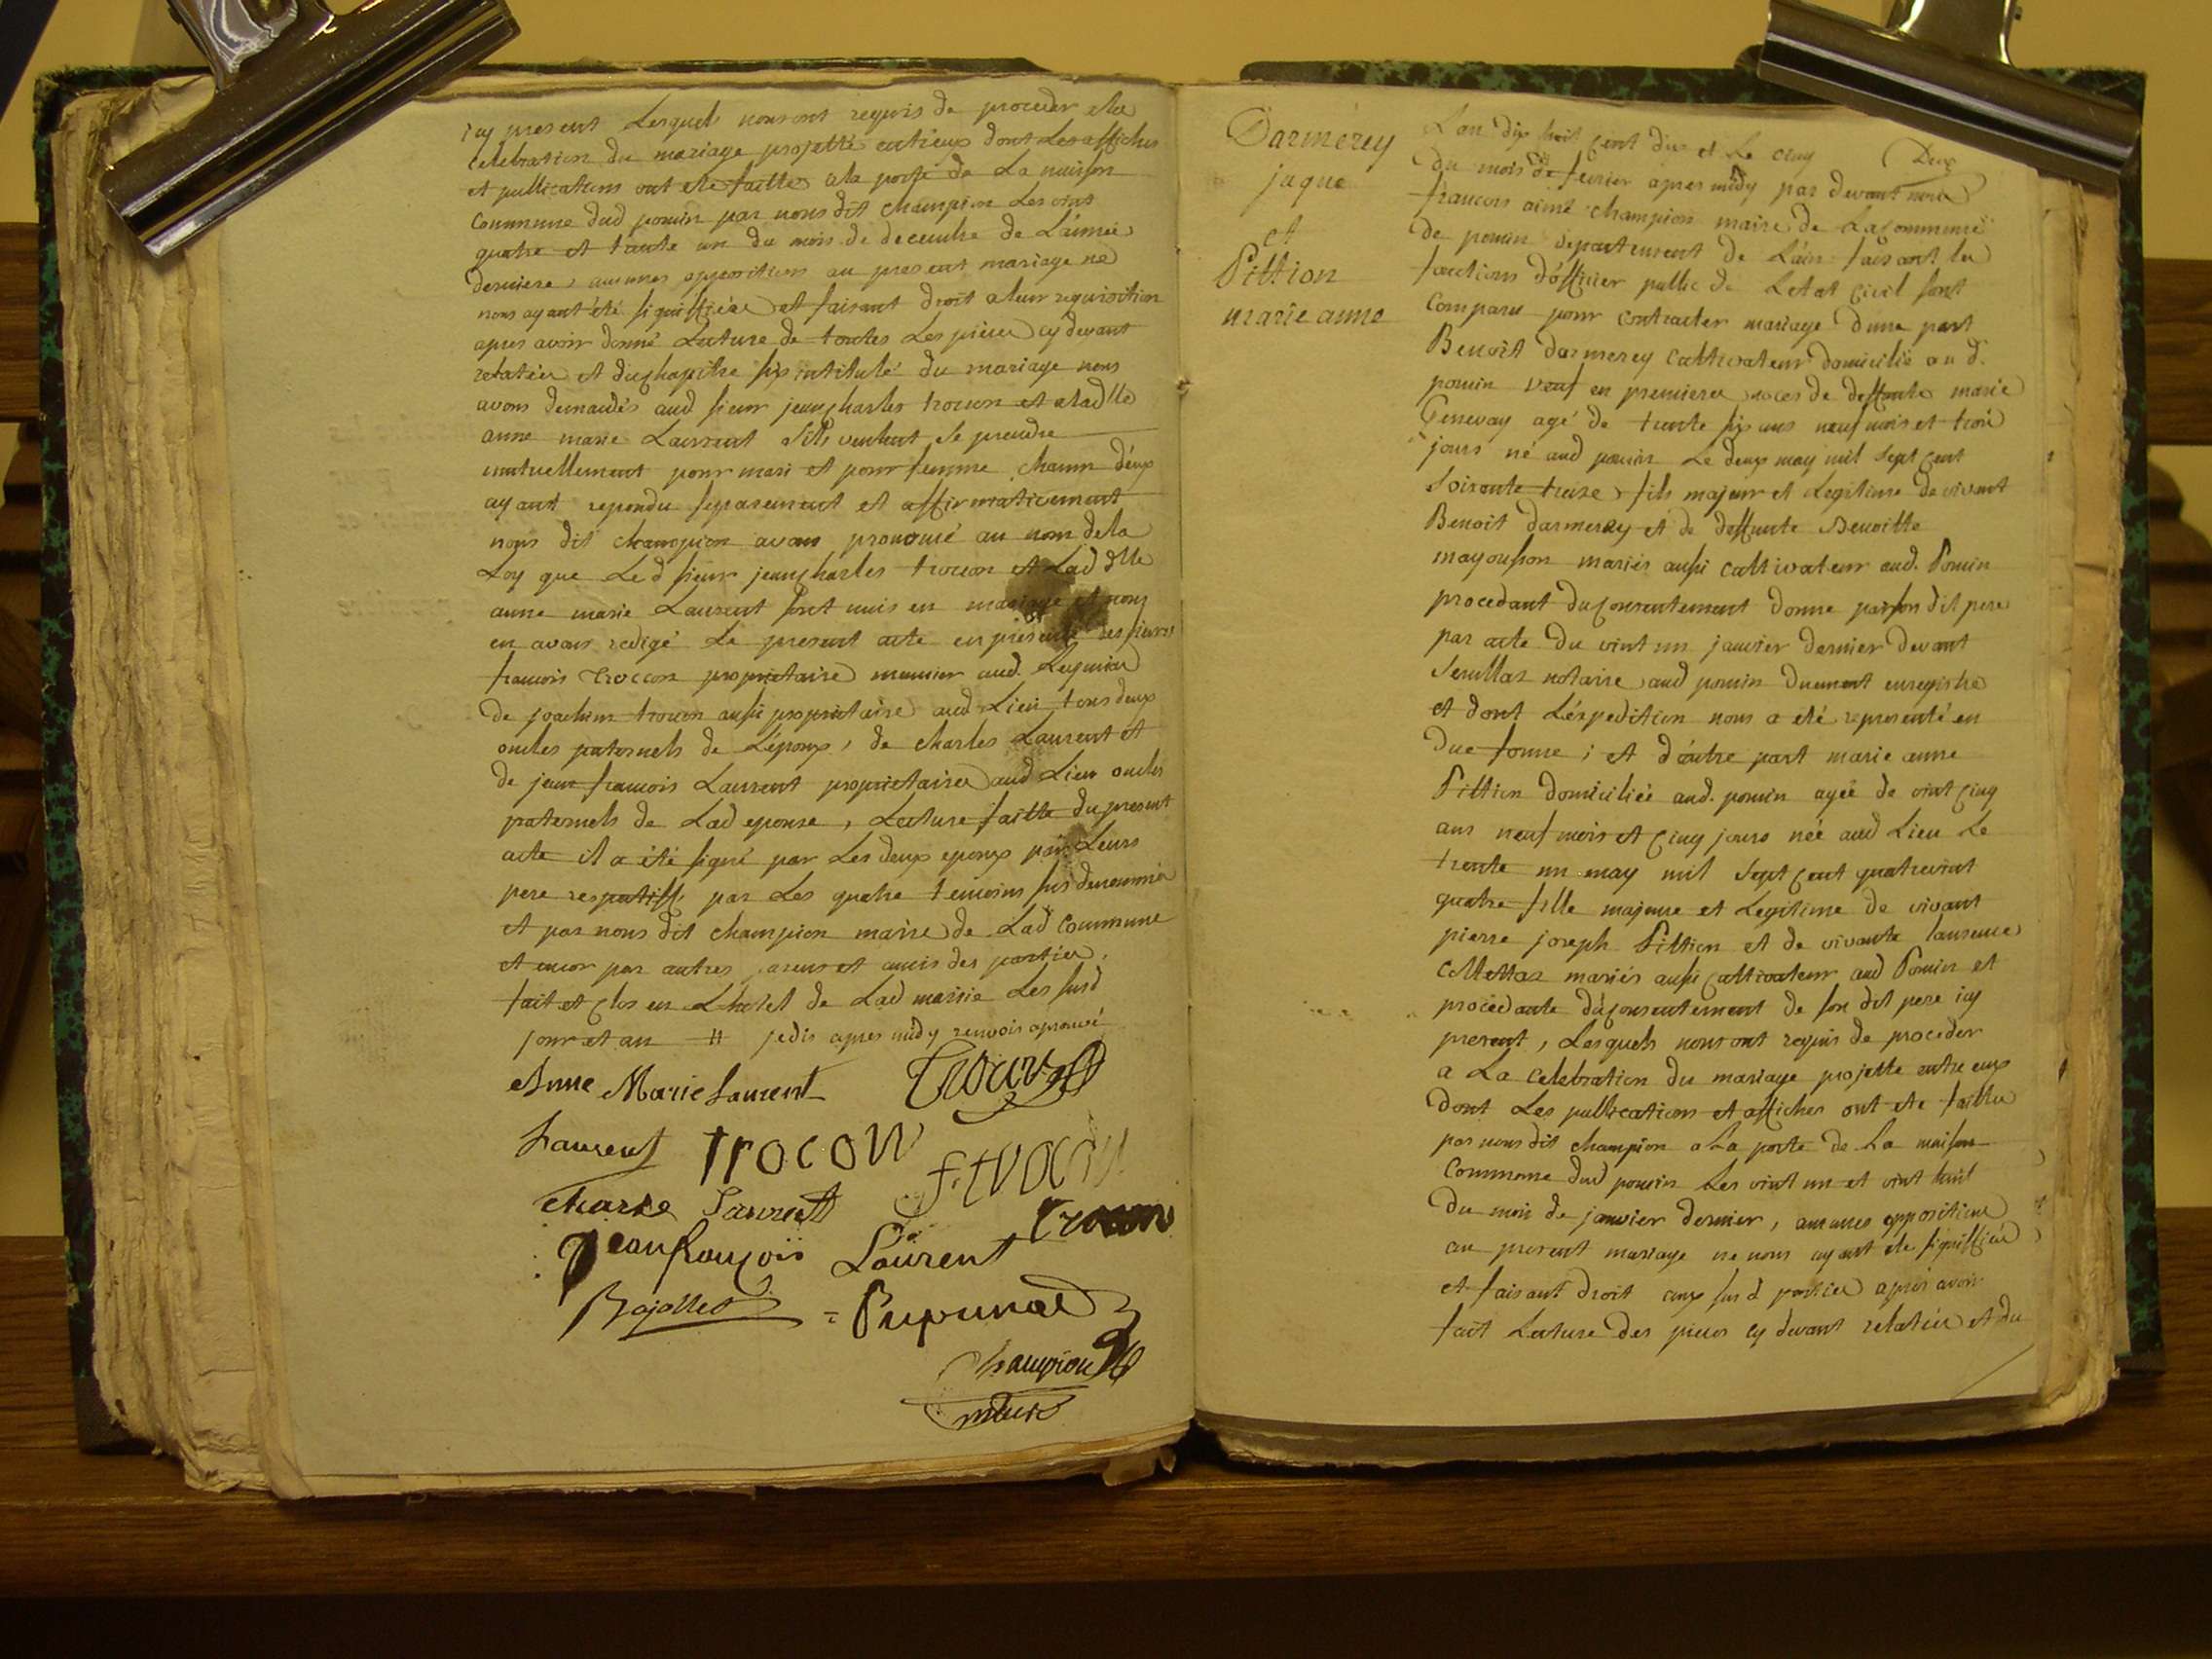 icy present Lesquels nous ont requis de proceder a la
celebration du mariage projetté entr'eux dont Les affiches
et publications ont ete faittes a la porte de La maison
commune dud pouin par nous dit champion Les vint
quatre et trante un du mois de decembre de L'année
derniere, aucunes oppositions au present mariage ne
nous ayant été signiffiées et faisant droit a leur requisition
apres avoir donné Lecture de toutes Les pieces cy devant
relatées et du chapitre six intitulé du mariage nous
avons demandés aud sieur jean charles trocon et a lad lle
anne marie Laurent s'ils veulent se prendre
mutuellement pour mari et pour femme chacun d'eux
ayant repondu separement et affirmativement
nous dit champion avons prononcé au nom de la
Loy que Led sieur jean charles trocon et Lad dlle
anne marie Laurent sont unis en mariage et nous
en avons redigé Le present acte en presence des sieurs
francois Troccon proprietaire meunier aud.
de joachim trocon aussi proprietaire aud Lieu tous deux
oncles paternels de L'époux, de charles Laurent et
de jean francois Laurent proprietaires aud Lieu oncles
paternels de Lad epouse, Lecture faitte du present
acte il a été signé par Les deux epoux par Leurs
pere respectiff par Les quatre temoins sus denommés
et par nous dit champion maire de Lad commune
et encor par autres parens et amis des parties,
fait et clos en L'hotel de Lad mairie Les susd
jour et an # jedis apres midy renvois aprouvé
Anne Marie Laurent Trocon
Laurent trocon f. trocon
Charle Laurent trocon
Jeanfrançois Laurent
Bajollet = Pupunat
Champion
maire
Darmerey
jaque
et
Pittion
marie anne
Deux
L'an dix huit cent dix et Le cinq
du mois de fevrier apres midy par devant nous
francois aimé champion maire de La commune
de pouin departement de L'ain faisant les
fonctions d'officier public de Letat civil sont
comparus pour contracter mariage d'une part
Benoit darmerey cultivateur domicilié au d.
pouin veuf en premieres noces de deffunte marie
Genevay agé de trente six ans neuf mois et trois
jours né aud pouin Le deux may mil sept cent
soixante treize fils majeur et Legitime de vivant
Benoit darmerey et de deffunte Benoitte
mayousson mariés aussi cultivateur aud. Pouin
procedant du consentement donné par son dit pere
par acte du vint un janvier dernier devant
notaire aud pouin duement enregistré
et dont L'expedition nous a été representé en
due forme; et d'autre part marie anne
Pittion domiciliée aud. pouin agée de vint cinq
ans neuf mois et cinq jours née aud Lieu Le
trente un may mil sept cent quatrevint
quatre fille majeure et Legitime de vivant
pierre joseph Pittion et de vivante laurence
Collettaz mariés aussi cultivateur aud Pouin et
procedante du consentement de son dit pere icy
present, Lesquels nous ont requis de proceder
a La celebration du mariage projetté entre eux
dont Les publications et affiches ont ete faittes
par nous dit champion a La porte de La maison
commune dud pouin Les vint un et vint huit
du mois de janvier dernier, aucunes oppositions
au present mariage ne nous ayant ete signiffiées
et faisant droit aux susd parties après avoir
fait Lecture des pieces cy devant relatées et du